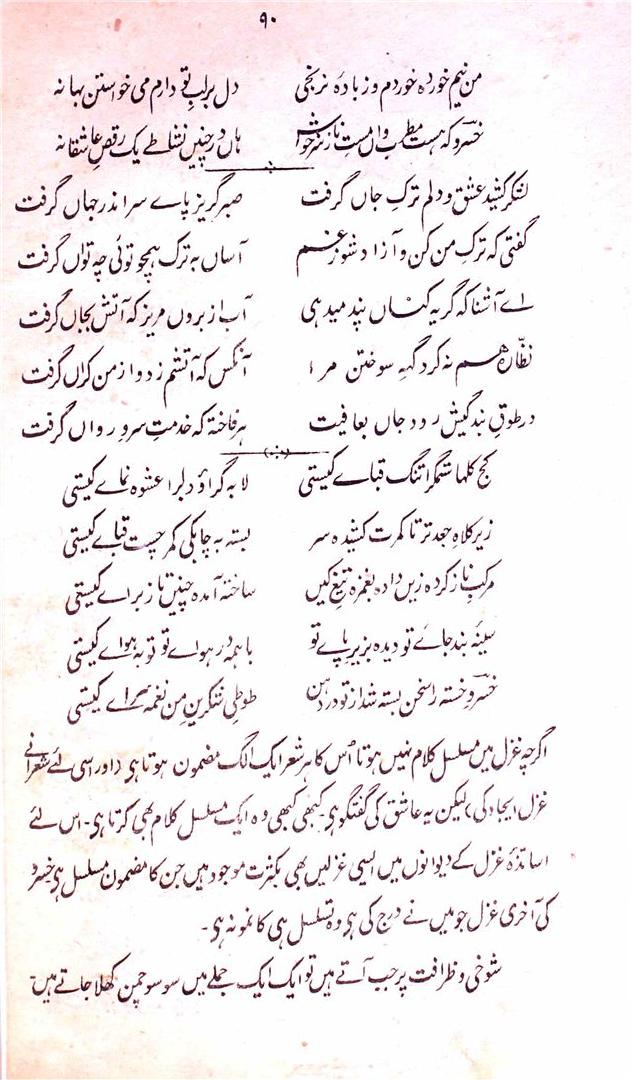 ۹۰
من نیم خورده خوردم و ز بادہ نرنجی دل برلبِ تو دارم می خواستن بہانہ
خسرو کہ ہست مطرب واں مستِ ناز سرخوش ہاں در چنیں نشاطے یک رقصِ عاشقانہ
لشکر کشید عشق و دلم ترکِ جاں گرفت صبرِ گریز پاے سر اندر جہاں گرفت
گفتی کہ ترکِ من کن و آزاد شو ز غم آساں بہ ترکِ ہمچو توئی چہ تواں گرفت
اے آشنا کہ گریہ کناں پند میدہی آب از بروں مریز کہ آتش بجاں گرفت
نظارہ ہم نہ کرد گہِ سوختن مرا آنکس کہ آتشم زد و از من کراں گرفت
در طوقِ بندگیش رود جاں بعافیت ہر فاختہ کہ خدمتِ سرو رواں گرفت
کج کلہا ستمگرا تنگ قباے کیستی لابہ گرا و دلبرا عشوہ نماے کیستی
زیرِ کلاہ جعدِ تر تا کمرت کشیدہ سر بستہ بہ چابکی کمر چست قباے کیستی
مرکبِ ناز کردہ زیں دادہ بغمزہ تیغِ کیں ساختہ آمدہ چنیں تا ز براے کیستی
سینۂ بند جائے تو دیدہ بزیرِ پاے تو با ہمہ در ہواے تو تو بہ ہواے کیستی
خسرو خستہ را سخن بستہ شد از تو در دہن طوطیِ شکرینِ من نغمہ سراے کیستی
اگرچہ غزل میں مسلسل کلام نہیں ہوتا اُس کا ہر شعر ایک الگ مضمون ہوتا ہی (اور اسی لئے شعرا نے
غزل ایجاد کی) لیکن یہ عاشق کی گفتگو ہی۔ کبھی کبھی وہ ایک مسلسل کلام بھی کرتا ہی۔ اس لئے
اساتذۂ غزل کے دیوانوں میں ایسی غزلیں بھی بکثرت موجود ہیں جن کا مضمون مسلسل ہی خسرو
کی آخری غزل جو میں نے درج کی ہی وہ تسلسل ہی کا نمونہ ہی۔
شوخی و ظرافت پر جب آتے ہیں تو ایک ایک جملے میں سو سو چمن کھلا جاتے ہیں۔